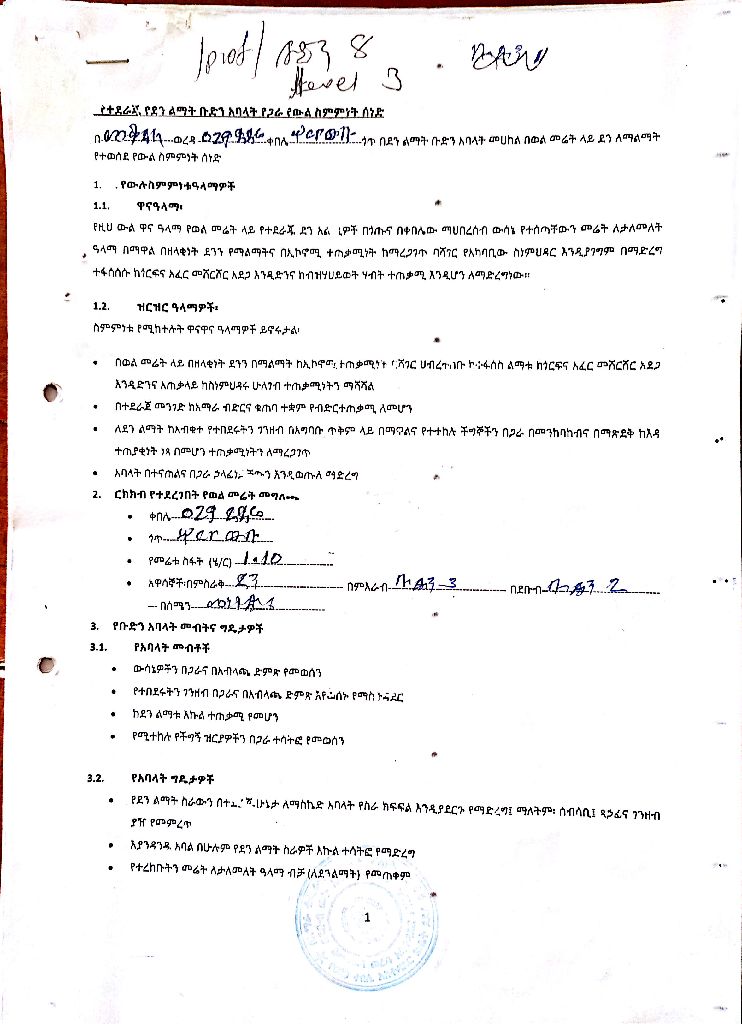 level 3
የተደራጁ የደን ልማት ቡድን አባላት የጋራ የውል ስምምነት ሰነድ
በ ወረዳ ቀበሌ ጎጥ በደን ልማት ቡድን አባላት መሀከል በወል መሬት ላይ ደን ለማልማት
የተወሰደ የውል ስምምነት ሰነድ
1. . የውሉስምምነቱዓላማዎች
1.1. ዋናዓላማ፡
የዚህ ውል ዋና ዓላማ የወል መሬት ላይ የተደራጁ ደን በጎጡና በቀበሌው ማህበረሰብ ውሳኔ የተሰጣቸውን መሬት ለታለመለት
ዓላማ በማዋል በዘላቂነት ደንን የማልማትና በኢኮኖሚ ተጠቃሚነት ከማረጋገጥ ባሻገር የአካባቢው ስነምህዳር እንዲያገግም በማድረግ
ተፋሰሱ ከጎርፍና አፈር መሸርሸር አደጋ እንዲድንና ከብዝሃህይወት ሃብት ተጠቃሚ እንዲሆን ለማድረግነው።
1.2. ዝርዝር ዓላማዎች፡
ስምምነቱ የሚከተሉት ዋናዋና ዓላማዎች ይኖሩታል፡
• በወል መሬት ላይ በዘላቂነት ደንን በማልማት ከኢኮኖሚ ተጠቃሚነት ልማቱ ከጎርፍና አፈር መሸርሸር አደጋ
እንዲድንና አጠቃላይ ከስነምህዳሩ ሁለገብ ተጠቃሚነትን ማሻሻል
• በተደራጀ መንገድ ከአማራ ብድርና ቁጠባ ተቋም የብድርተጠቃሚ ለመሆን
• ለደን ልማት ከአብቁተ የተበደሩትን ገንዘብ በአግባቡ ጥቅም ላይ በማዋልና የተተከሉ ችግኞችን በጋራ በመንከባከብና በማጽደቅ ከእዳ
ተጠያቂነት ነጻ በመሆን ተጠቃሚነትን ለማረጋገጥ
• አባላት በተናጠልና በጋራ እንዲወጡ ማድረግ
2. ርክክብ የተደረገበት የወል መሬት መግለጫ
• ቀበሌ
• ጎጥ
• የመሬቱ ስፋት (ሄ/ር) 1.10
• አዋሳኞች፡በምስራቅ በምእራብ በደቡብ
በሰሜን
3. የቡድን አባላት መብትና ግዴታዎች
3.1. የአባላት መብቶች
• ውሳኔዎችን በጋራና በአብላጫ ድምጽ የመወሰን
• የተበደሩትን ገንዘብ በጋራና በአብላጫ ድምጽ
• ከደን ልማቱ እኩል ተጠቃሚ የመሆን
• የሚተከሉ የችግኝ ዝርያዎችን በጋራ ተሳትፎ የመወሰን
3.2. የአባላት ግዴታዎች
• የደን ልማት ስራውን ለማስኬድ አባላት የስራ ክፍፍል እንዲያደርጉ የማድረግ፤ ማለትም፡ ሰብሳቢ፤ ጸኃፊና ገንዘብ
ያዥ የመምረጥ
• እያንዳንዱ አባል በሁሉም የደን ልማት ስራዎች እኩል ተሳትፎ የማድረግ
• የተረከቡትን መሬት ለታለመለት ዓላማ ብቻ (ለደንልማት) የመጠቀም
1